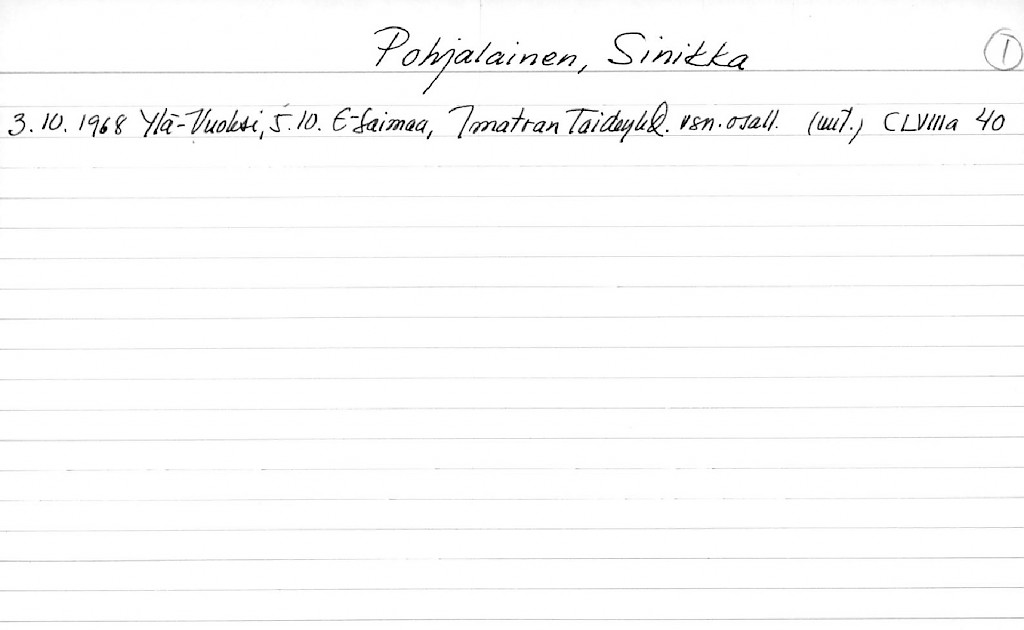 Pohjalainen, Sinikka
1
3.10.1968 Ylä-Vuoksi, 5.10. E-Saimaa, Imatran Taideyhd. vsn. osall. (uut.) CLVIIIa 40